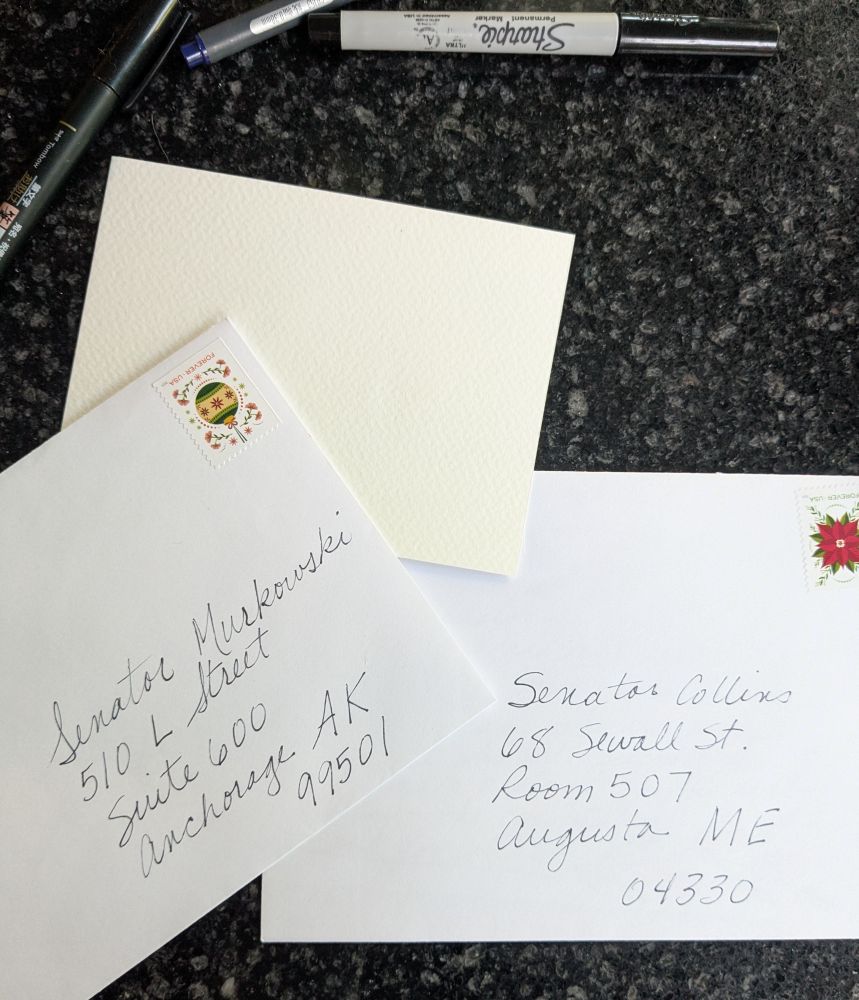 Sharpie.
Permanent Marker
ULTRA
Tombow
FOREVER · USA
Senator Murkowski
510 L Street
Suite 600
Anchorage AK
99501
FOREVER · USA
Senator Collins
68 Sewall St.
Room 507
Augusta ME
04330